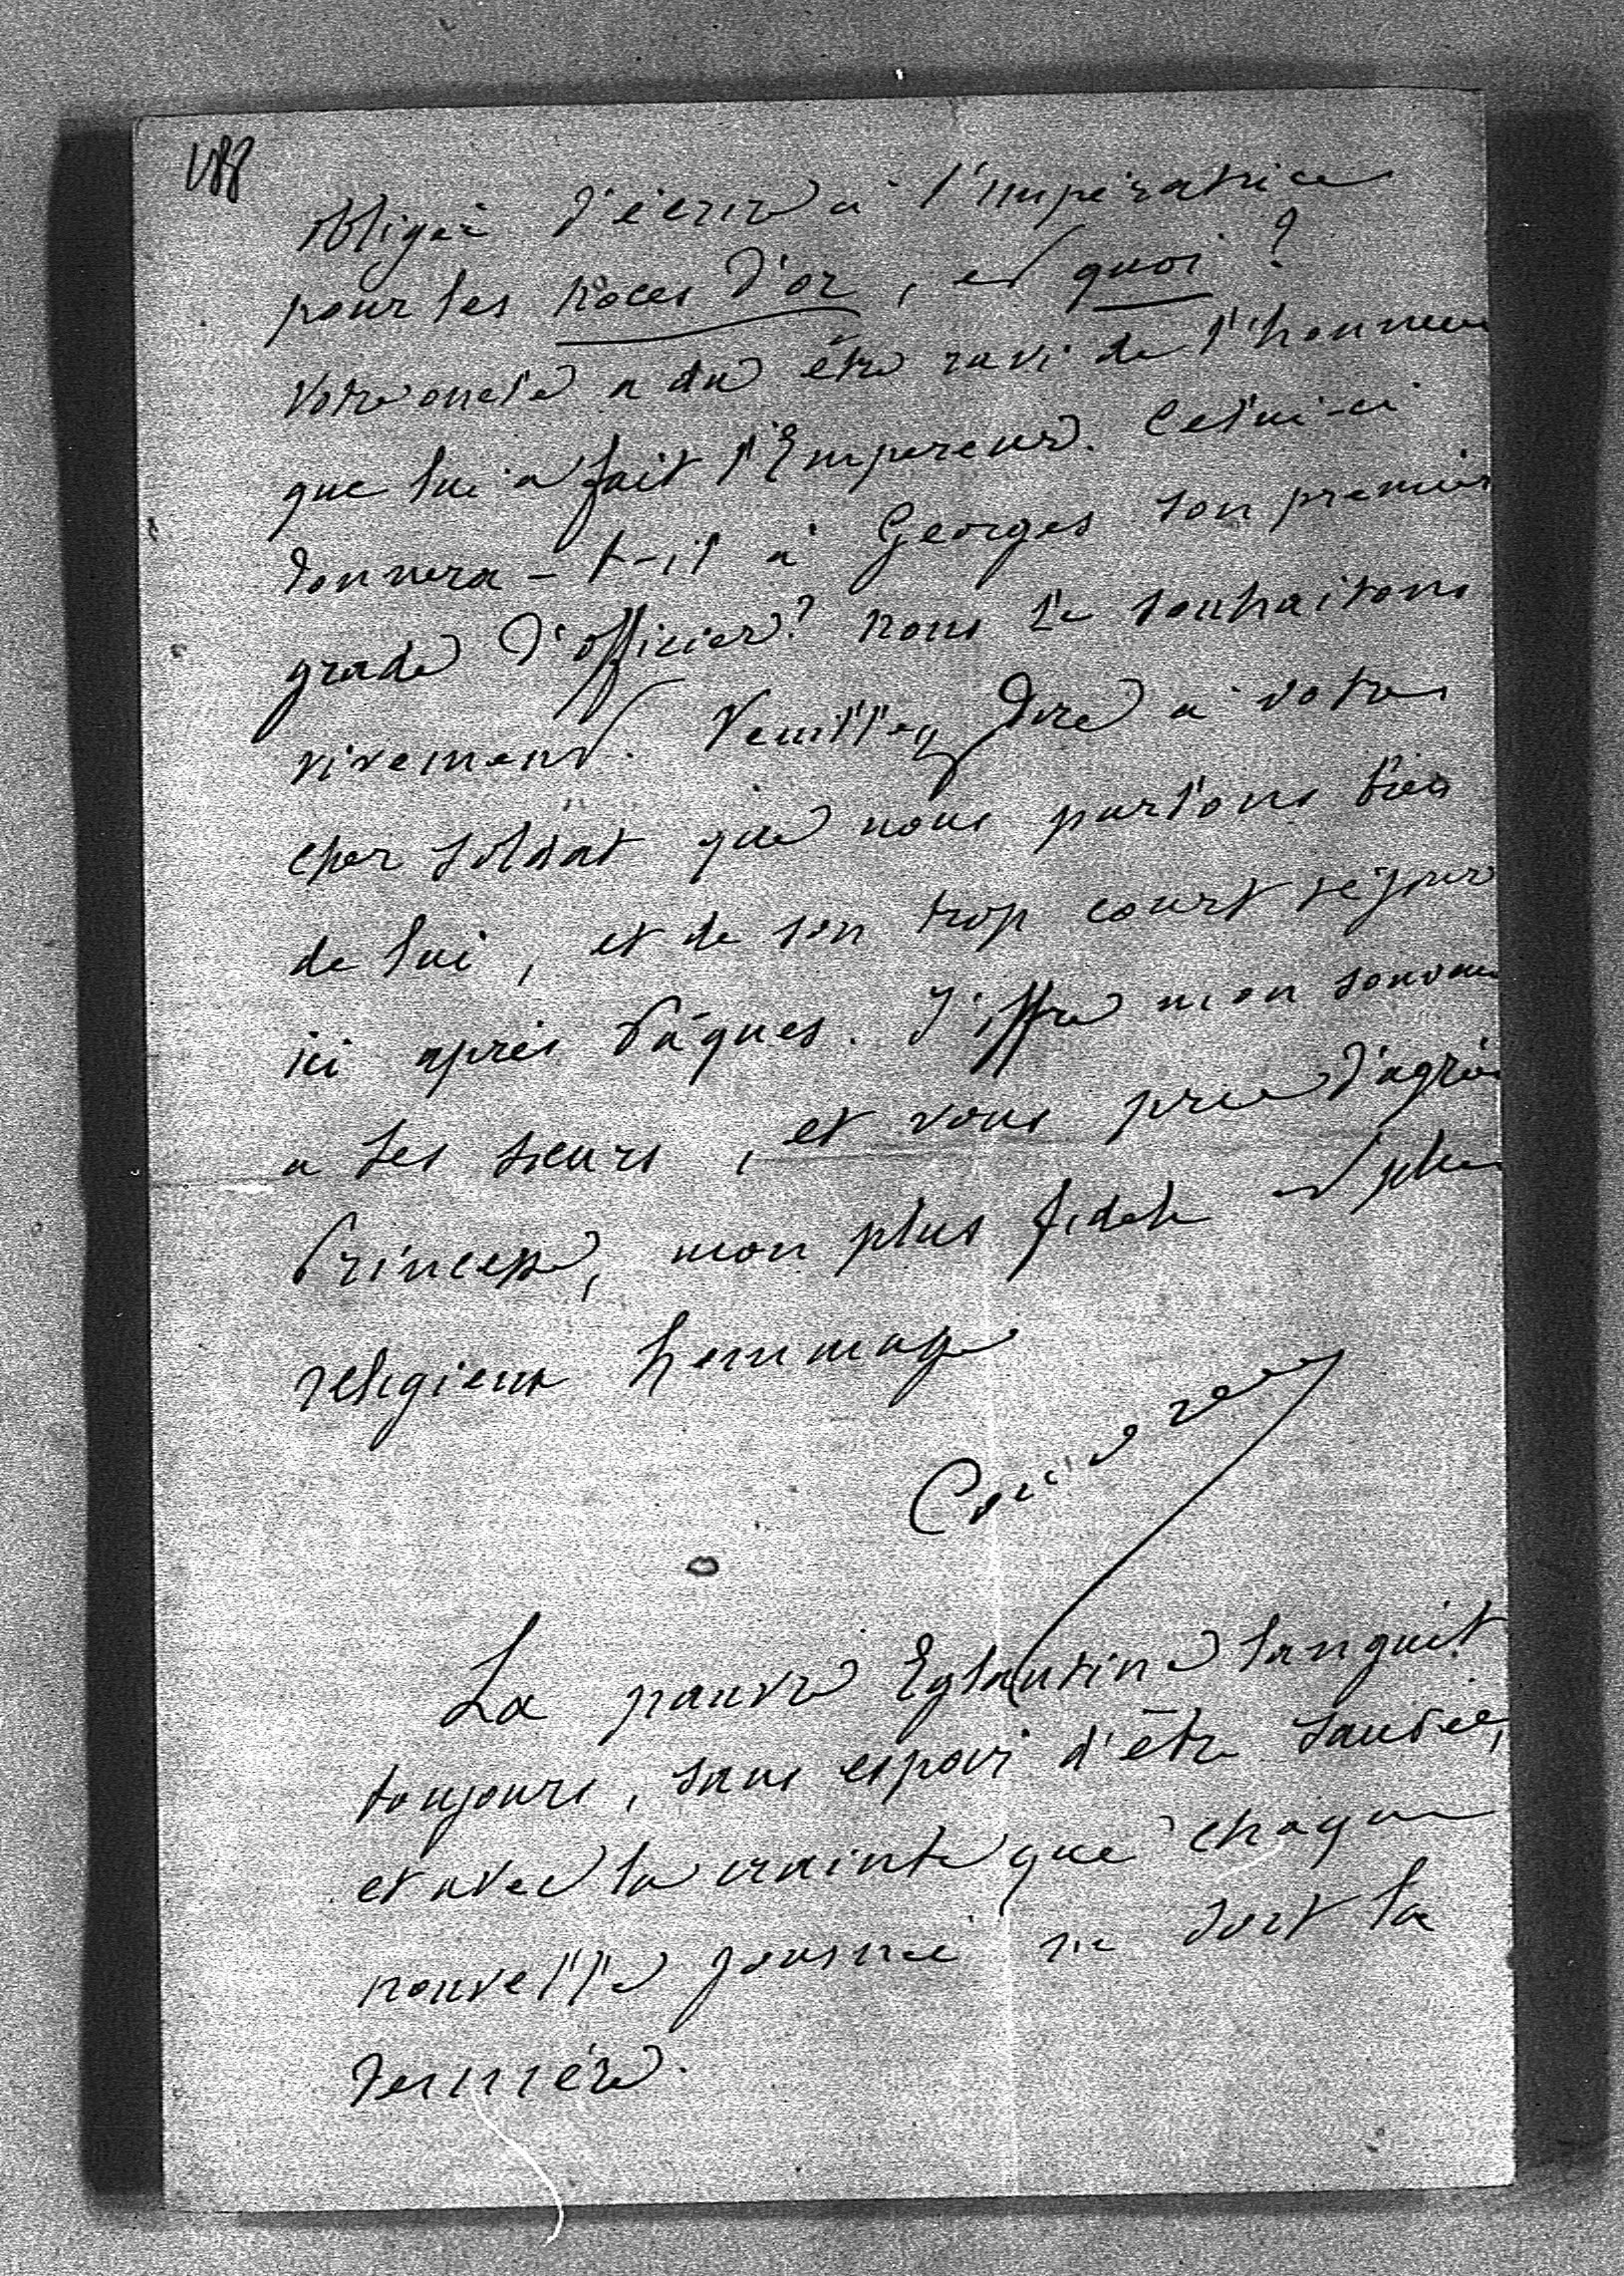 188
obligée d'écrire à l'impératrice
pour les noces d'or, et quoi ?
Votre oncle a du être ravi de l'honneur
que lui a fait l'Empereur. Celui-ci
donnera-t-il à Georges son premier
grade d'officier ? nous le souhaitons
vivement. Veuillez dire à votre
cher soldat que nous parlons bien
de lui, et de son trop court séjour
ici après Pâques. J'offre mon souvenir
a ses sœurs, et vous prie d'agréer
Princesse, mon plus fidèle et plus
religieux hommage
La pauvre Eglantine languit
toujours, sans espoir d'être sauvée,
et avec la crainte que chaque
nouvelle journée ne soit la
dernière.